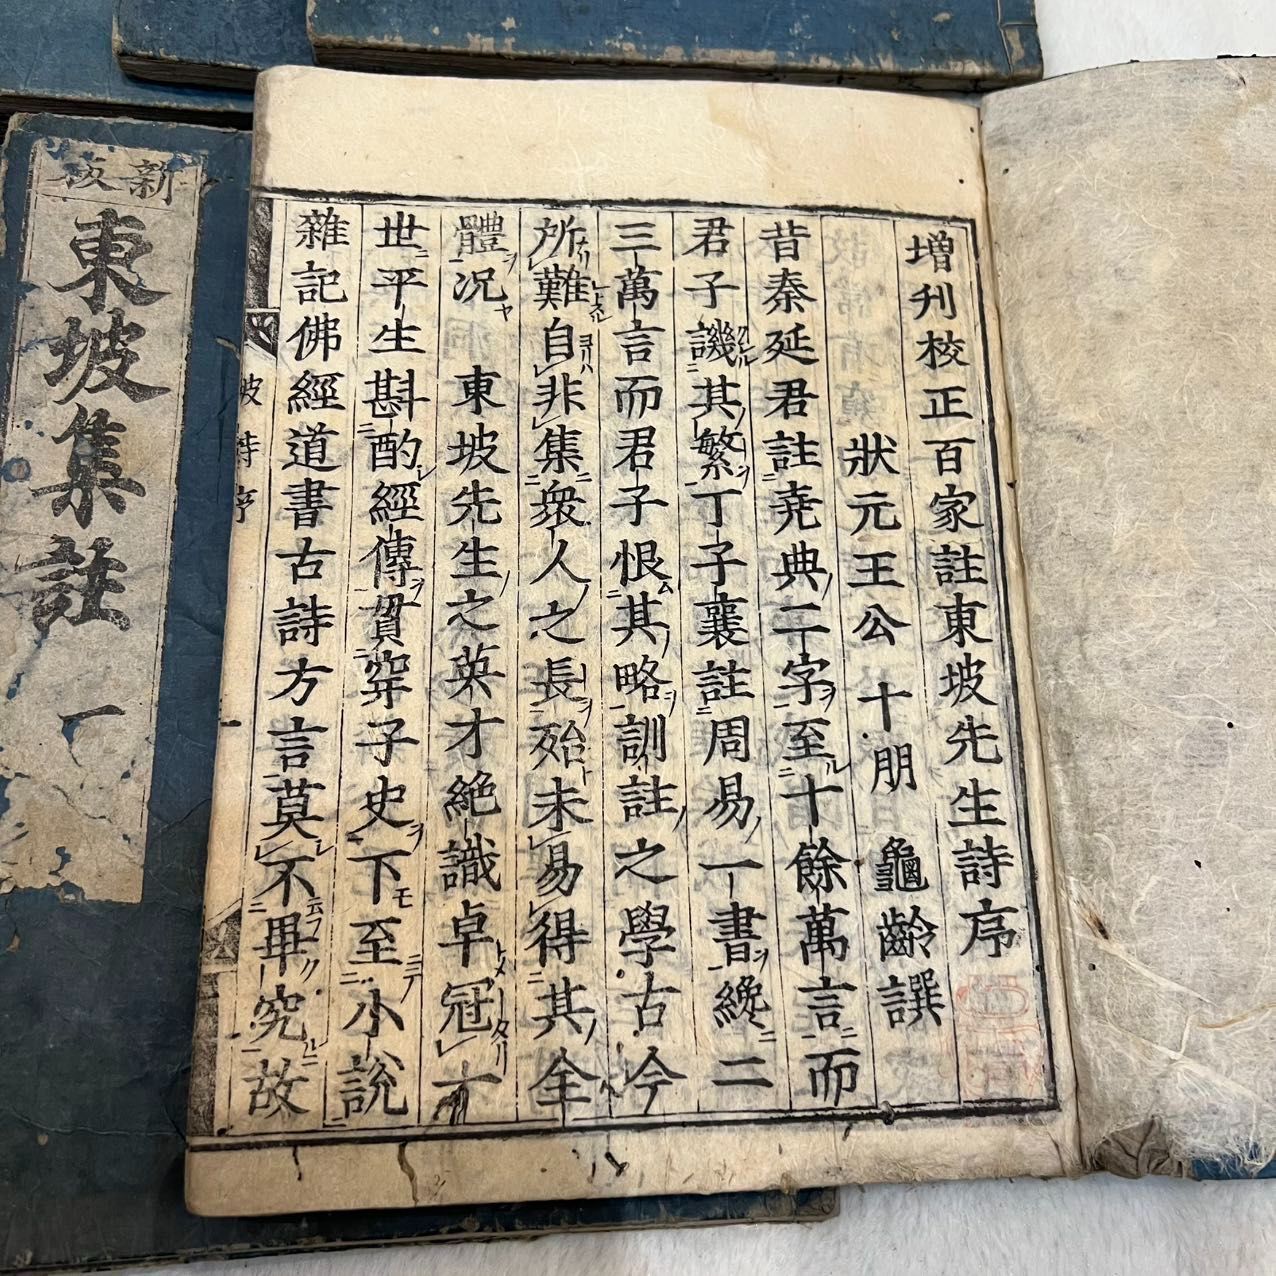 増刊校正百家註東坡先生詩序
狀元王公 十朋 龜齡譔
昔秦延君註堯典二字至十餘萬言而
君子譏其繁丁子襄註周易一書纔二
三萬言而君子恨其略訓註之學古今
所難自非集衆人之長殆未易得其全
體況 東坡先生之英才絶識卓冠一
世平生斟酌經傳貫穿子史下至小說
雜記佛經道書古詩方言莫不畢究故
坡詩序
一
新板
東坡集註
一